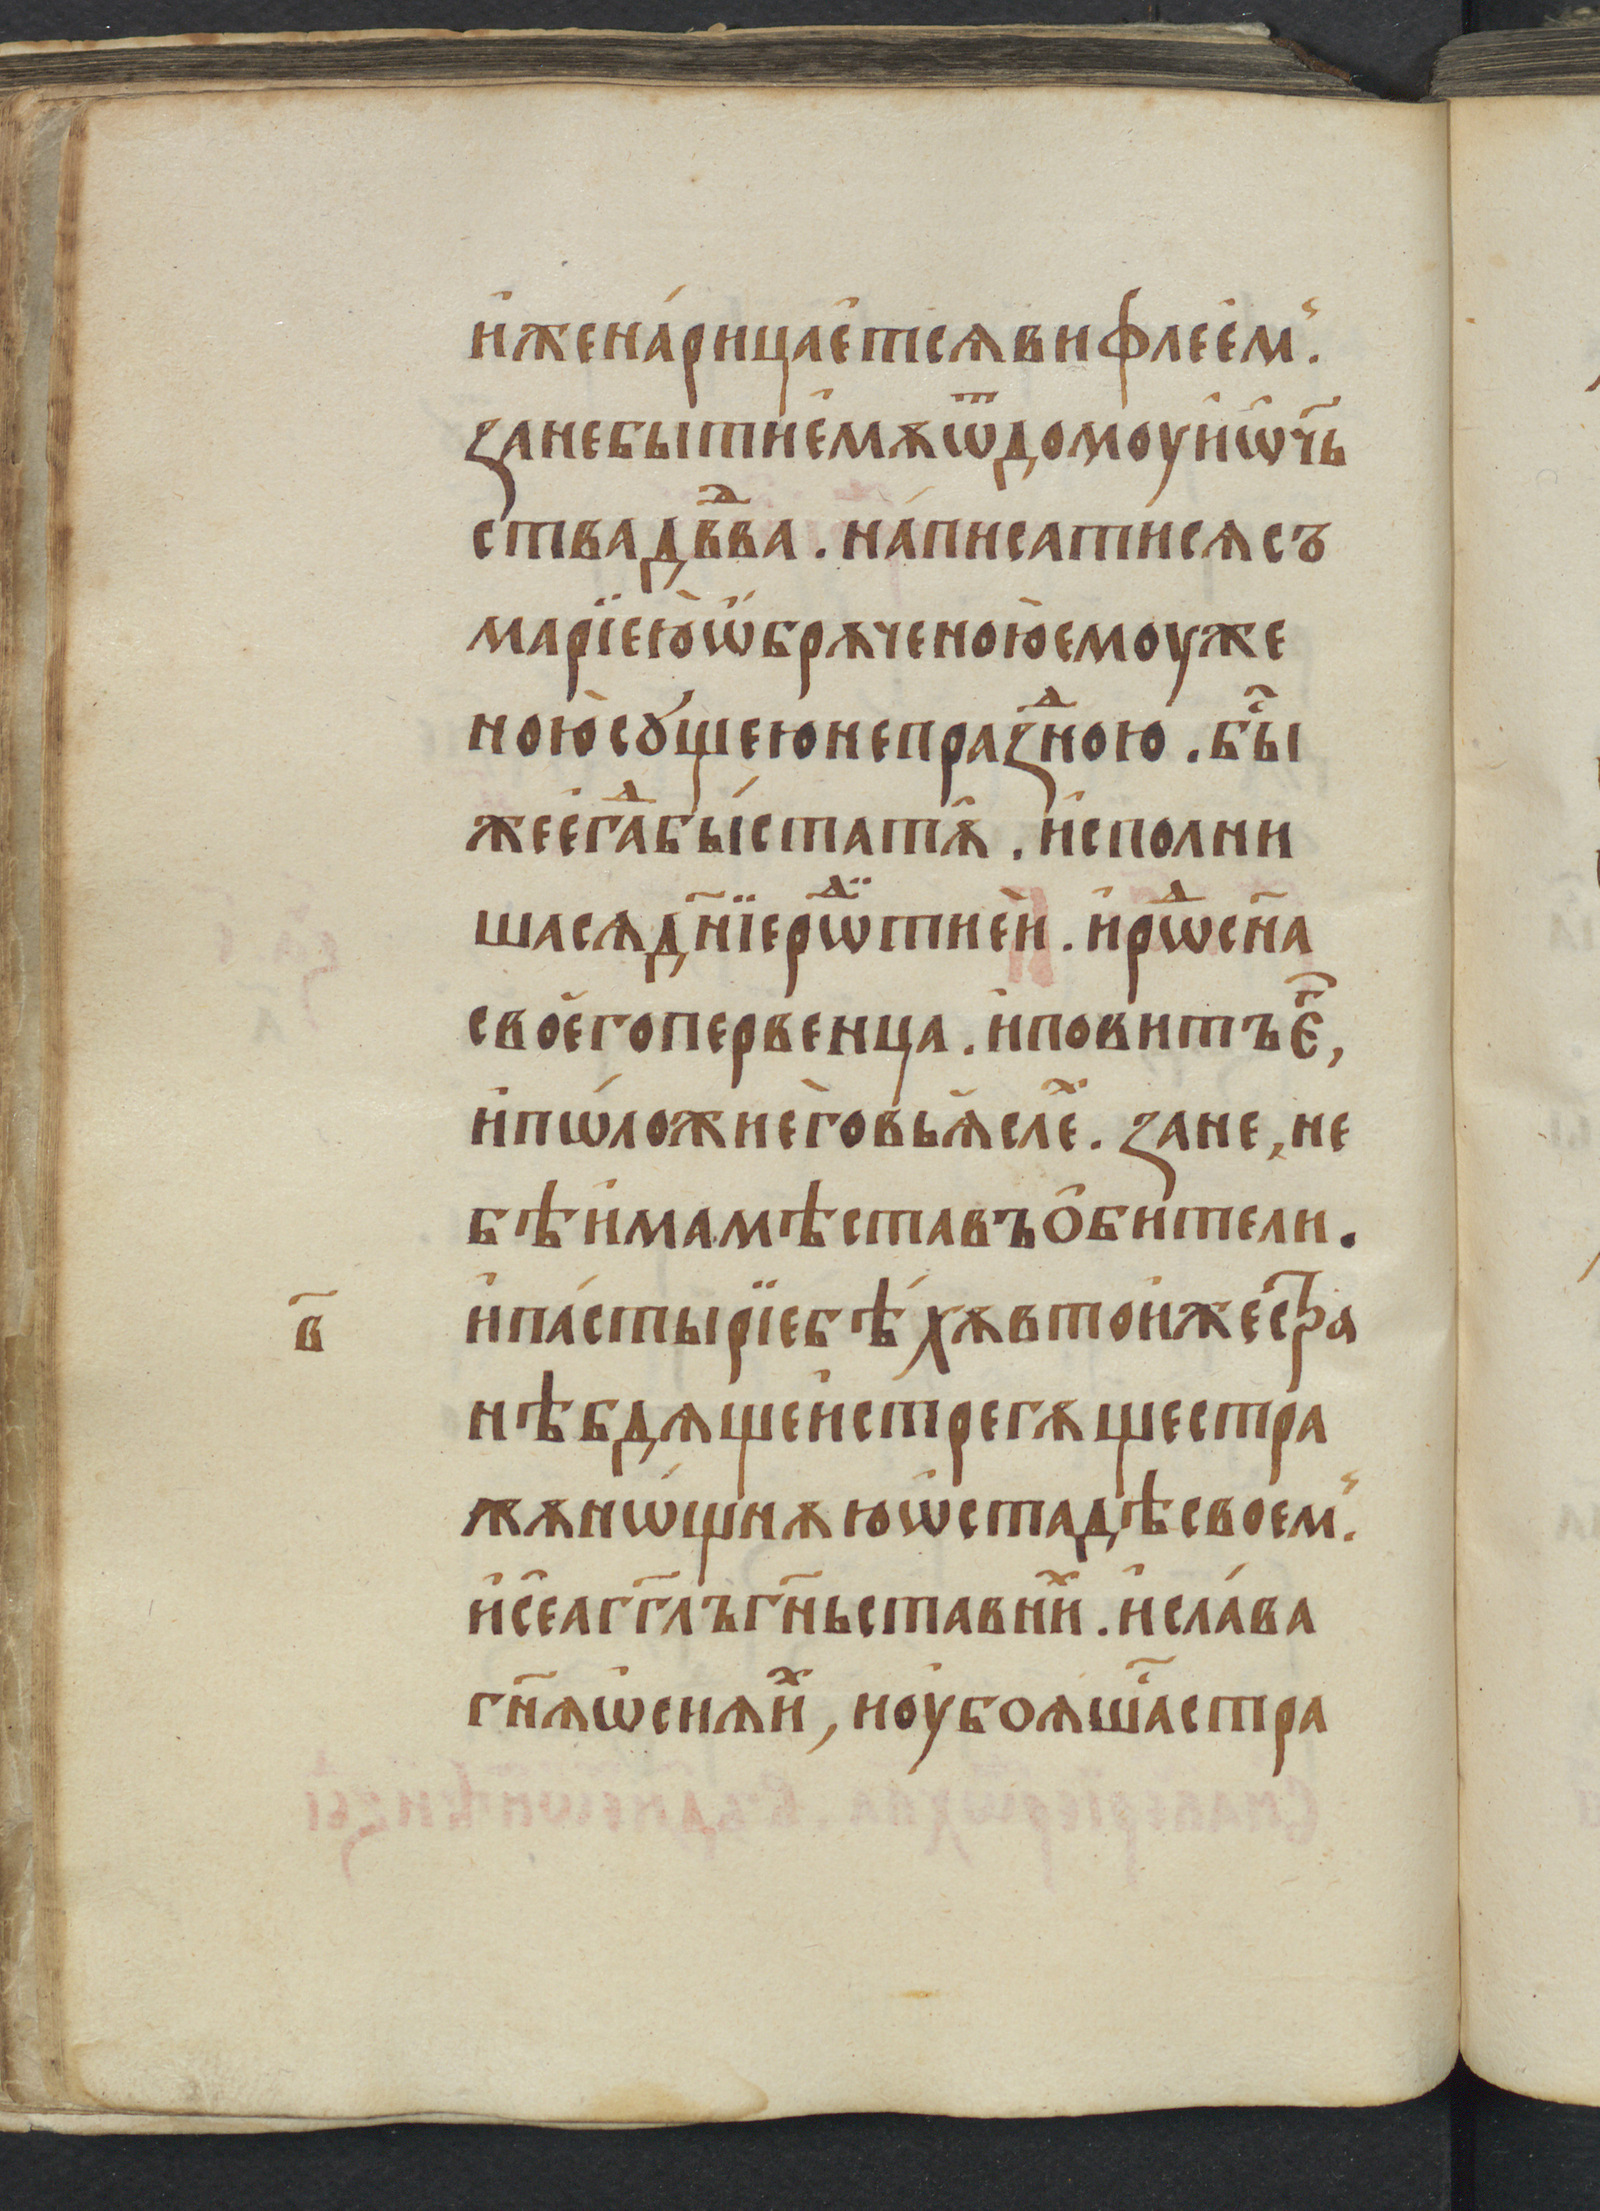 и҆жена́рицае҆тсѧвифлее҆м̾.
занебытие҆мѫѿдомоуи҆ѡ҆ч҃ь
ствадв҃два. на́писатисѧсъ
марїею̀ѡ҆брѫченою̀емоуже
ною̀сꙋ́щеюнепразⷣною. бы҇
жеє҆гⷣабы́статꙋ̑. и҆сполни
шасѧдн҃їерѡⷣ҇тиеѝ. и҆рѡⷣсн҃а
свое҆гопервенца. и҆повитъє҆ⷢ,
и҆пѡ́ложиеѐговьꙗ҆слеⷯ. зане, не
бѣи҆мамѣставъѻ҆бители.
в҃
и҆па́стырїебѣ́хѫвтои҆жест҇ра
нѣбдѧщеи҆стрегѫщестра
жѫнѡ́щнѫюѡ҆стадѣсвоем̾.
и҆се҆агг҃лъгн҃ьставниⷯ. и҆сла́ва
гн҃ѧѡ҆сиѧиⷯ, ноу҆боѧшаⷭ҇стра